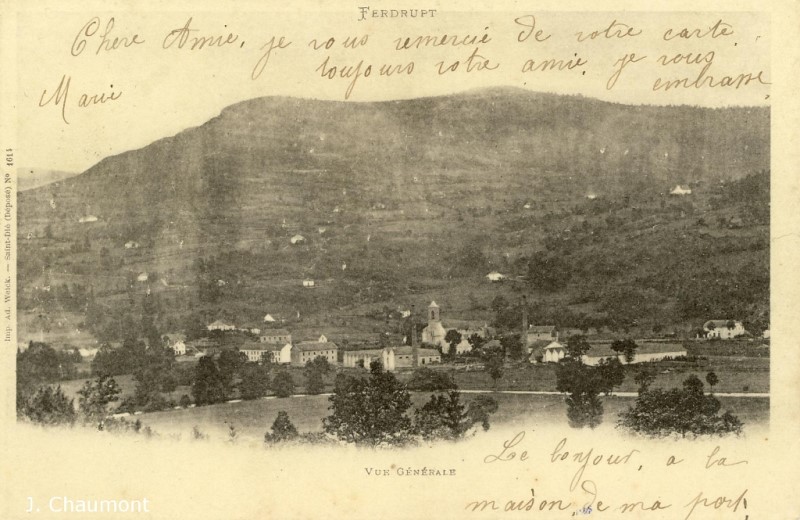 FERDRUPT
Chere Amie, je vous remercie de votre carte
toujours votre amie je vous
Marie embrasse
Imp. Ad. Weick. — Saint-Dié (Déposé) Nº 1614
VUE GÉNÉRALE
Le bonjour, a la
maison de ma part
J. Chaumont